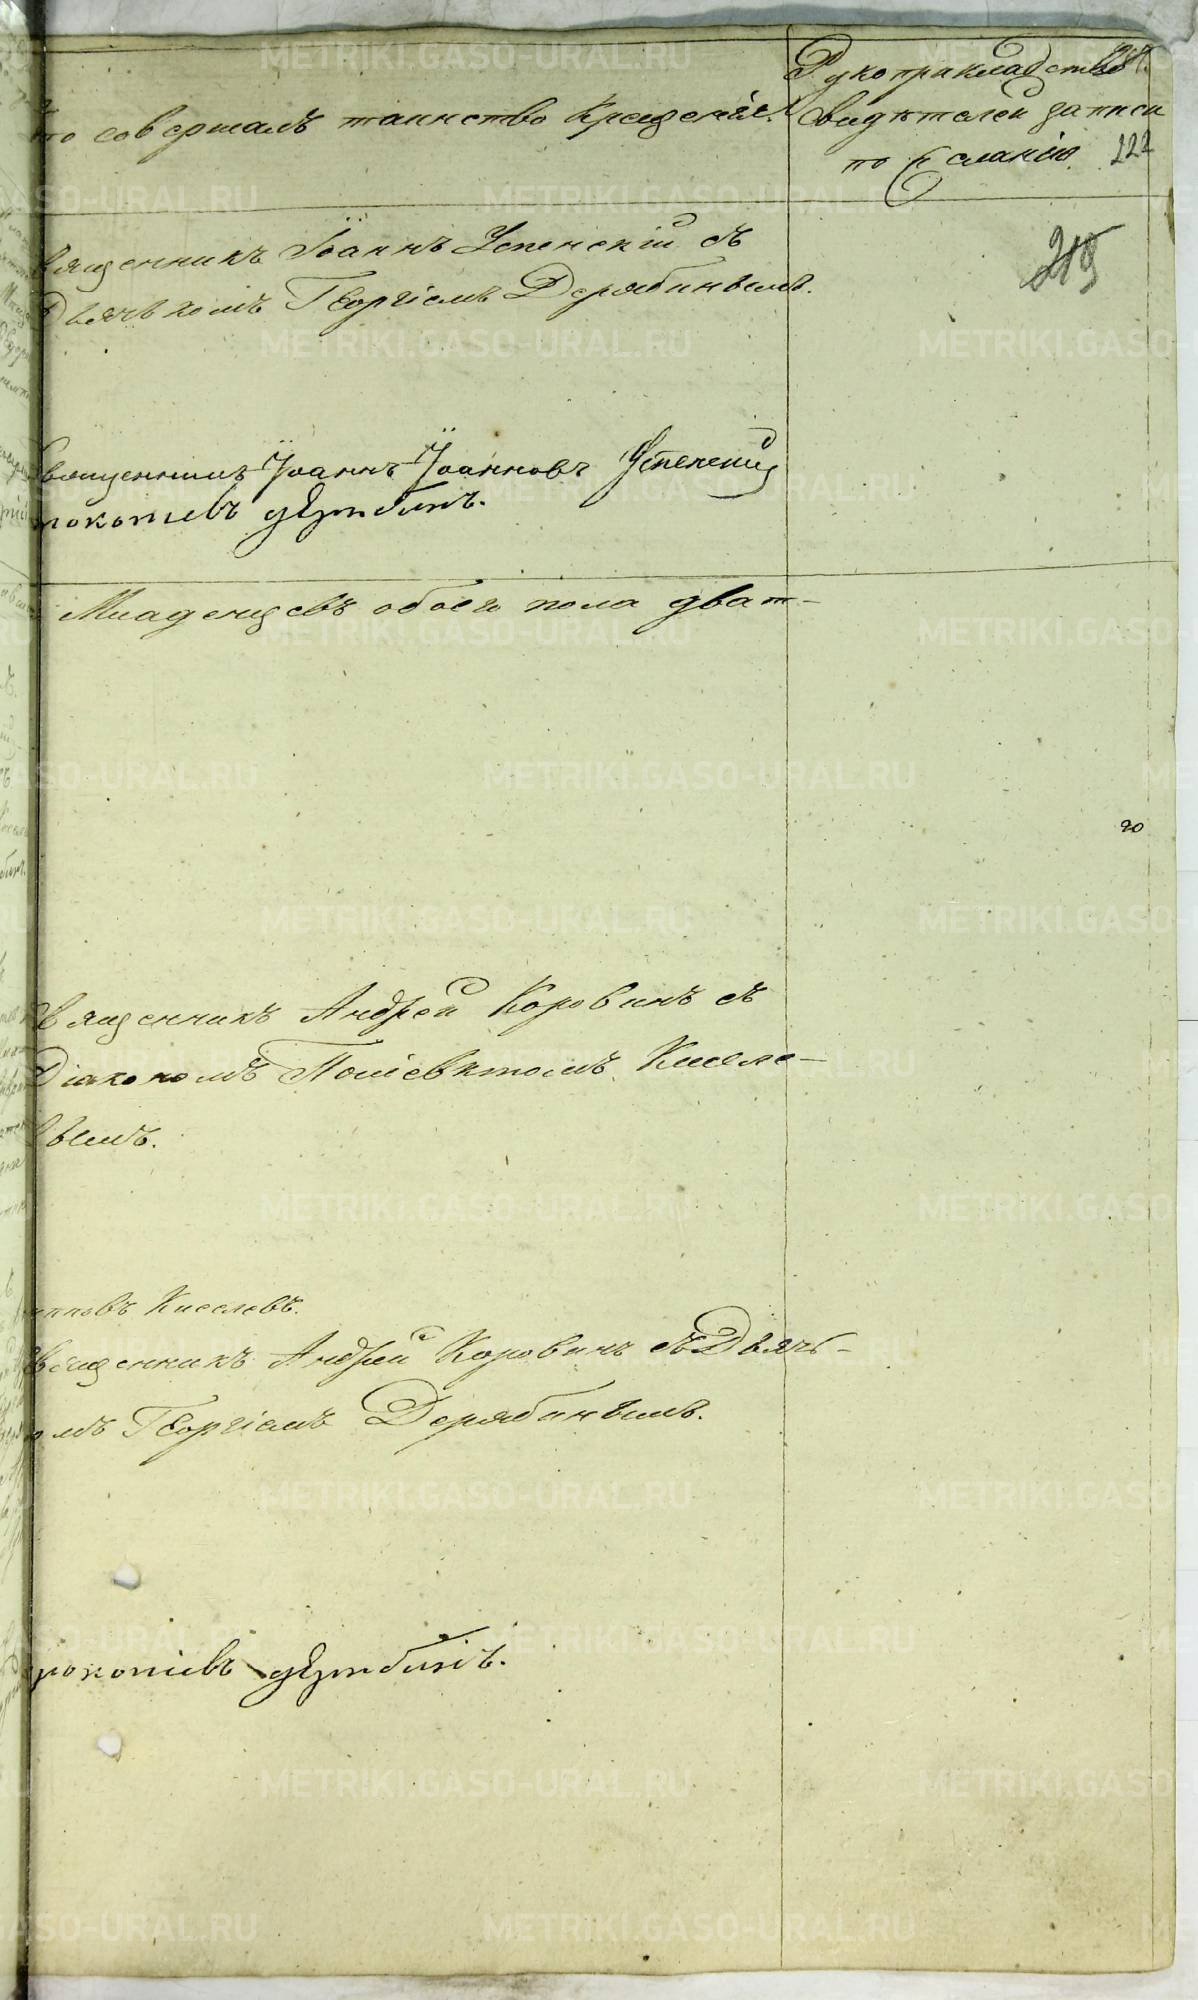 Кто совершалъ таинство Крещенія.
Рукоприкладство
свидѣтелей записи
по желанію.
222
219
Священникъ Іоаннъ Успенскій съ
Дьячкомъ Георгіемъ Дерябинымъ.
Священникъ Іоаннъ Іоанновъ Успенскій
Прокопіевъ Дерябинъ.
Младенцевъ обоего пола двад-
20
Священникъ Андрей Коровинъ съ
Діакономъ Поліевктомъ Киселе-
вымъ.
Киселевъ.
Священникъ Андрей Коровинъ съ Дьяч-
комъ Георгіемъ Дерябинымъ.
Прокопіевъ Дерябинъ.
METRIKI.GASO-URAL.RU